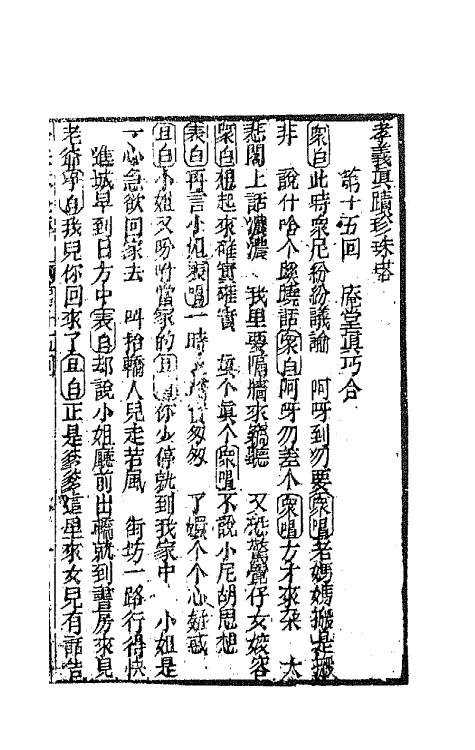 孝義真蹟珍珠塔
第十五回 庵堂真巧合
衆白此時衆尼紛紛議論 呵呀到勿要衆唱老媽媽搬是搬
非 說什哈个蹺蹊話衆白呵呀勿差个衆唱女才來朶 太
悲閣上話濃濃 我里要隔牆來竊聽 又恐驚覺仔女姣容
衆白想起來確實確實 眞个眞个衆唱不說小尼胡思想
表白再言小姐表唱一時 匆匆 了嬛个个心疑惑
旦白小姐又吩咐當家的旦 你少停就到我家中 小姐是
一心急欲回家去 叫抬轎人兒走若風 街坊一路行得快
進城早到日方中表白却說小姐廳前出轎就到書房來見
老爺 白我兒你回來了旦白正是爹爹這里來女兒有話告